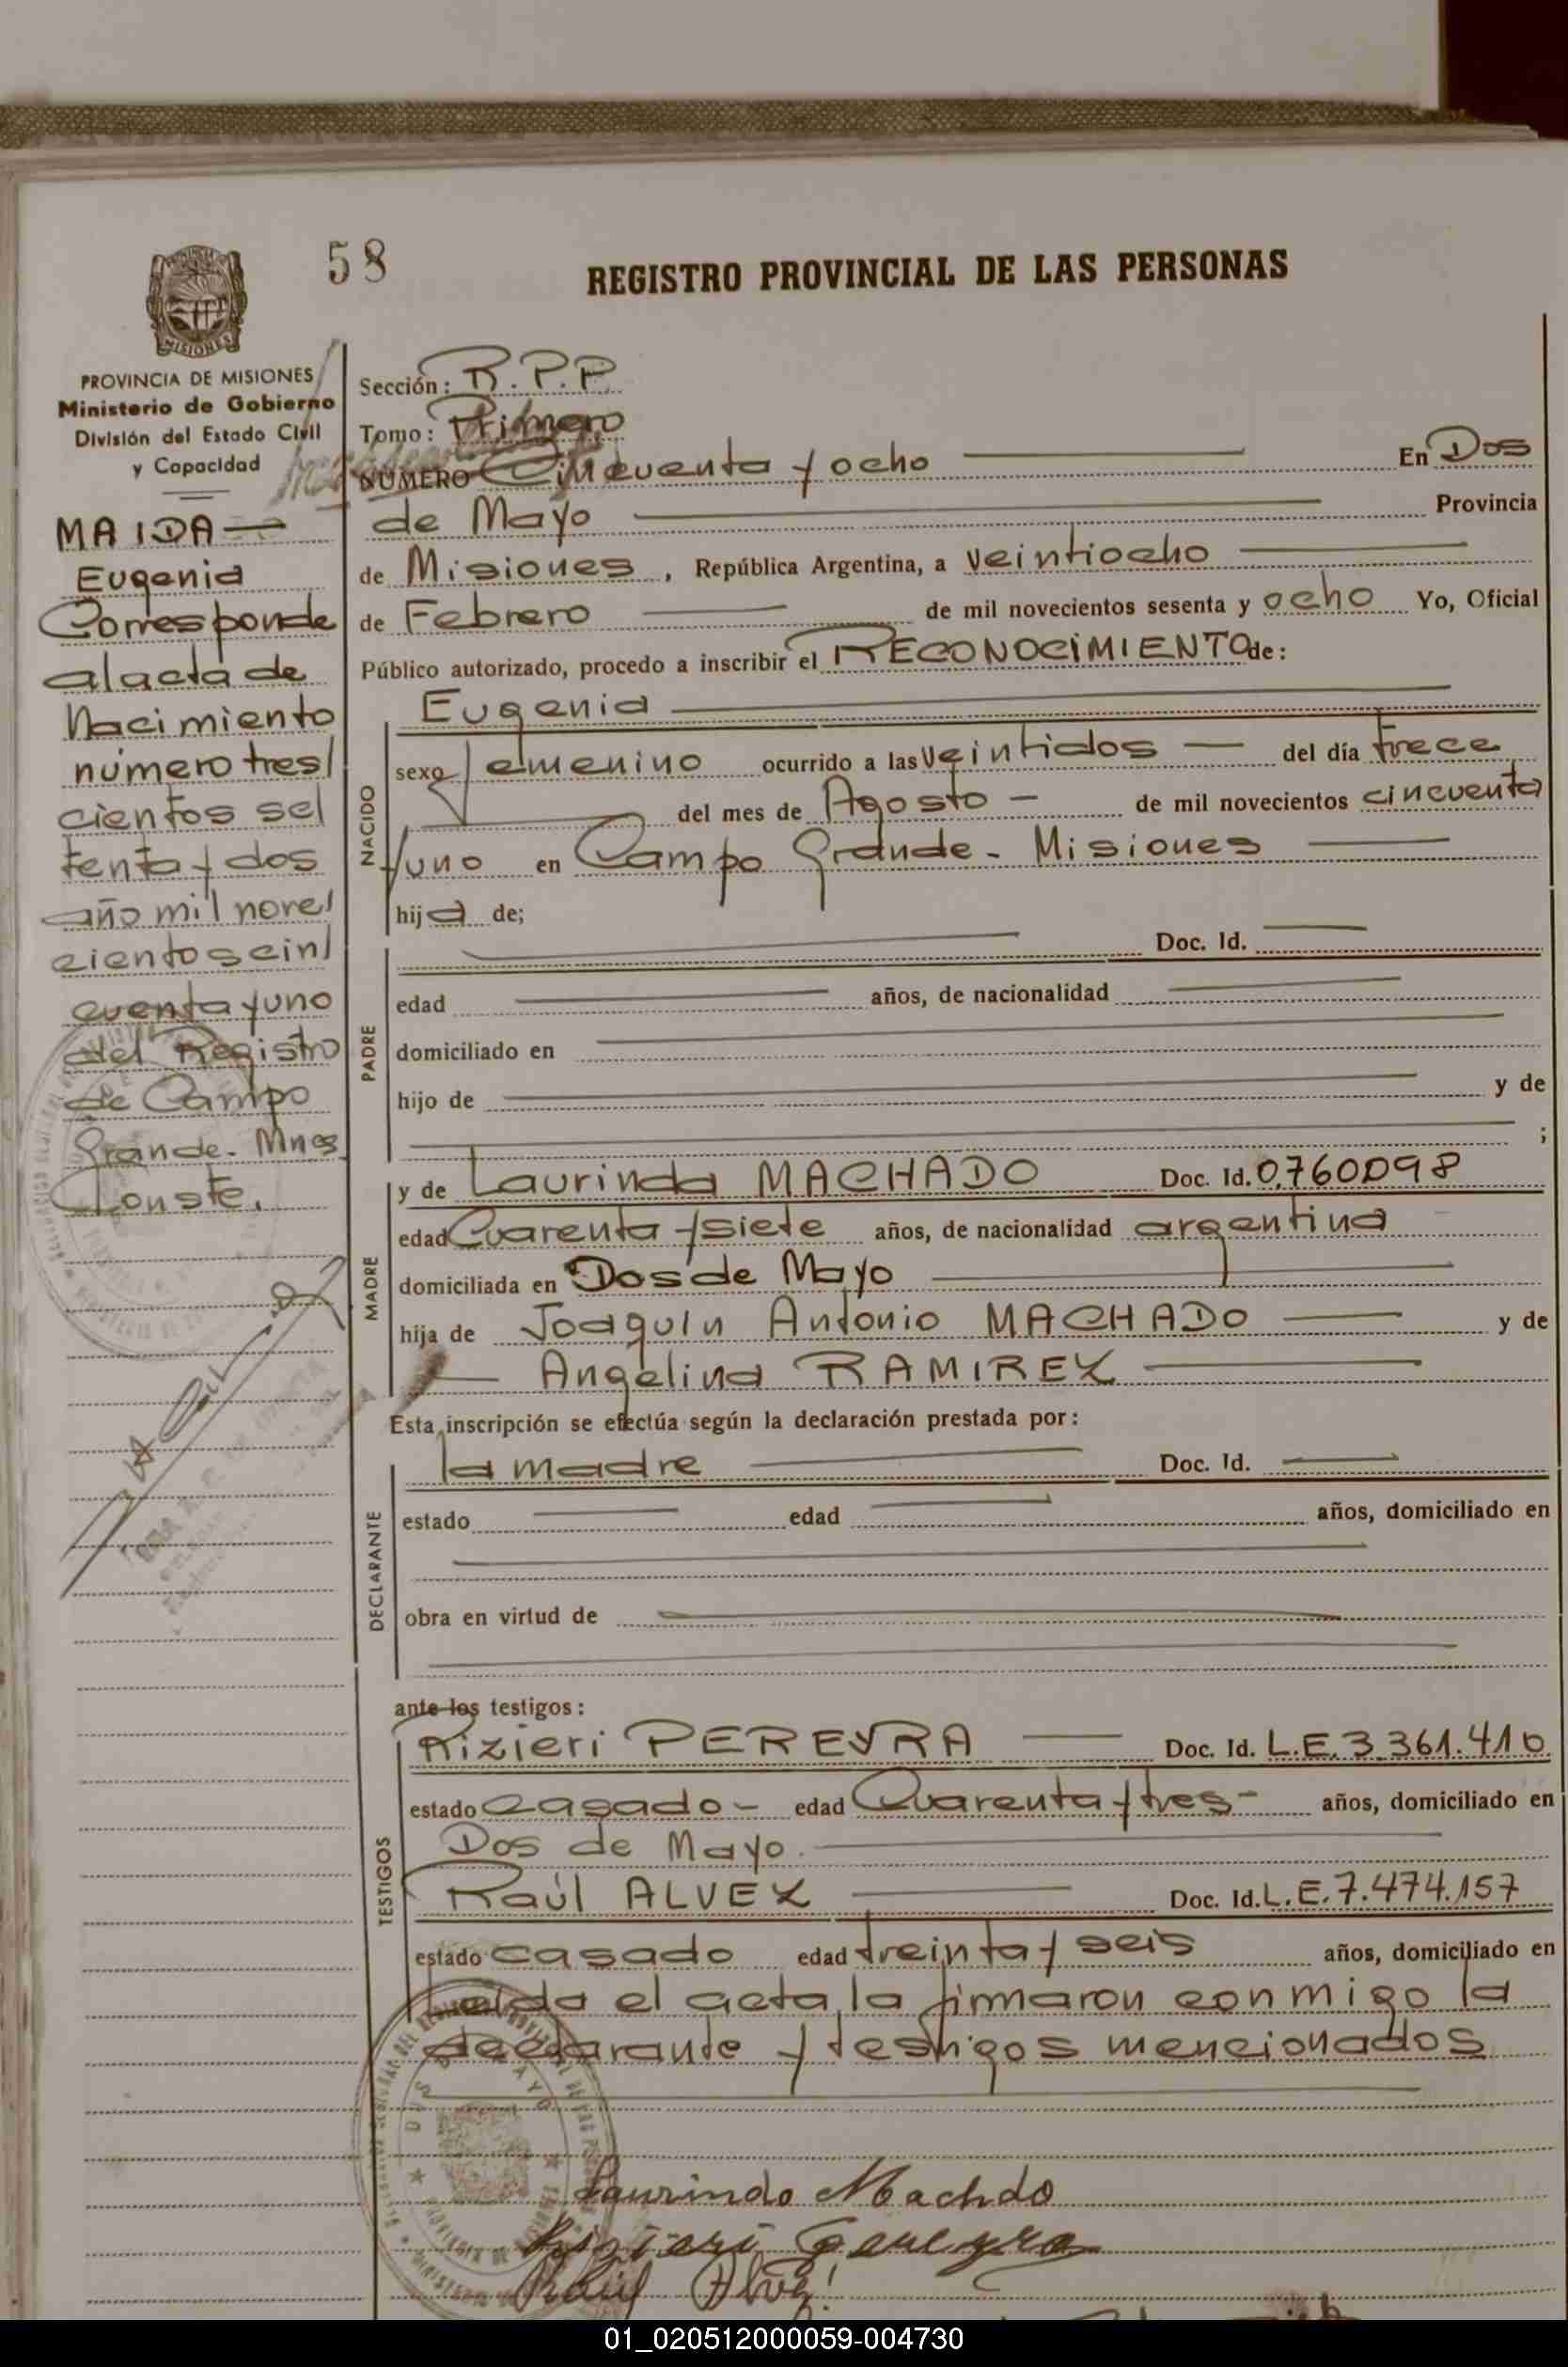 58
REGISTRO PROVINCIAL DE LAS PERSONAS
MISIONES
PROVINCIA DE MISIONES
Ministerio de Gobierno
División del Estado Civil
y Capacidad
MAIDA
Eugenia
Corresponde
al acta de
Nacimiento
número tres/
cientos se/
tenta y dos
año mil nove/
cientos cin/
cuenta y uno
del Registro
de Campo
Grande - Mnes
Conste.
Sección: R.P.P.
Tomo: Primero
NUMERO Cincuenta y ocho En Dos
de Mayo Provincia
de Misiones, República Argentina, a veintiocho
de Febrero de mil novecientos sesenta y ocho Yo, Oficial
Público autorizado, procedo a inscribir el RECONOCIMIENTO de:
NACIDO
Eugenia
sexo femenino ocurrido a las veintidos del día trece
del mes de Agosto de mil novecientos cincuenta
y uno en Campo Grande - Misiones
hija de;
PADRE
Doc. Id.
edad años, de nacionalidad
domiciliado en
hijo de y de
;
MADRE
y de Laurinda MACHADO Doc. Id. 0.760.098
edad Cuarenta y siete años, de nacionalidad argentina
domiciliada en Dos de Mayo
hija de Joaquín Antonio MACHADO y de
Angelina RAMIREZ
Esta inscripción se efectúa según la declaración prestada por:
DECLARANTE
la madre Doc. Id.
estado edad años, domiciliado en
obra en virtud de
ante los testigos:
TESTIGOS
Rizieri PEREYRA Doc. Id. L.E. 3.361.416
estado casado - edad Cuarenta y tres - años, domiciliado en
Dos de Mayo.
Raúl ALVEZ Doc. Id. L.E. 7.474.157
estado casado edad treinta y seis años, domiciliado en
Leida el acta, la firmaron conmigo la
declarante y testigos mencionados
Laurindo Machdo
Rizieri Pereyra
Raul Alvez
01_020512000059-004730